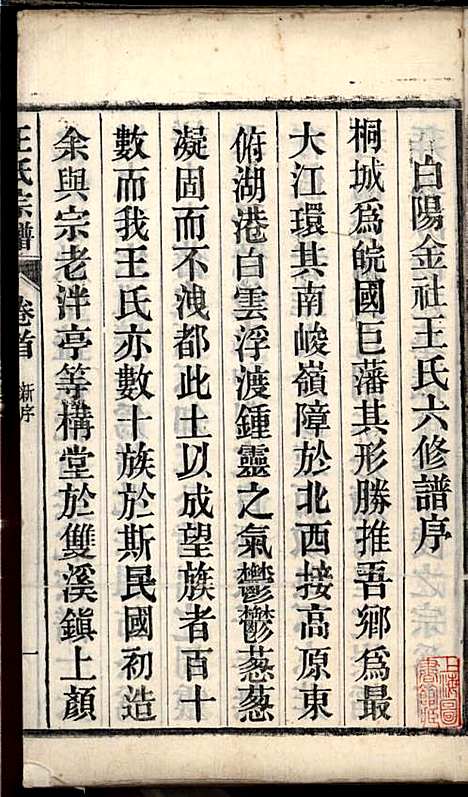 白陽金社王氏六修譜序
桐城爲皖國巨藩其形勝推吾鄉爲最
大江環其南峻嶺障於北西接高原東
俯湖港白雲浮渡鍾靈之氣鬱鬱蔥蔥
凝固而不洩都此土以成望族者百十
數而我王氏亦數十族於斯民國初造
余與宗老泮亭等構堂於雙溪鎮上顏
王氏宗譜 卷首 新序 一
上海圖書館藏